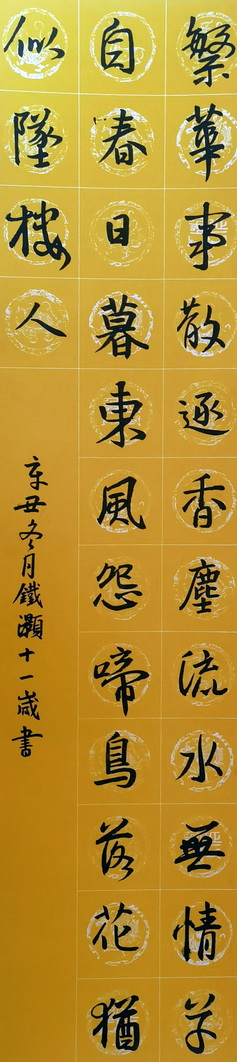 繁華事散逐香塵流水無情草
自春日暮東風怨啼鳥落花猶
似墜樓人
辛丑冬月鐵灝十一歲書